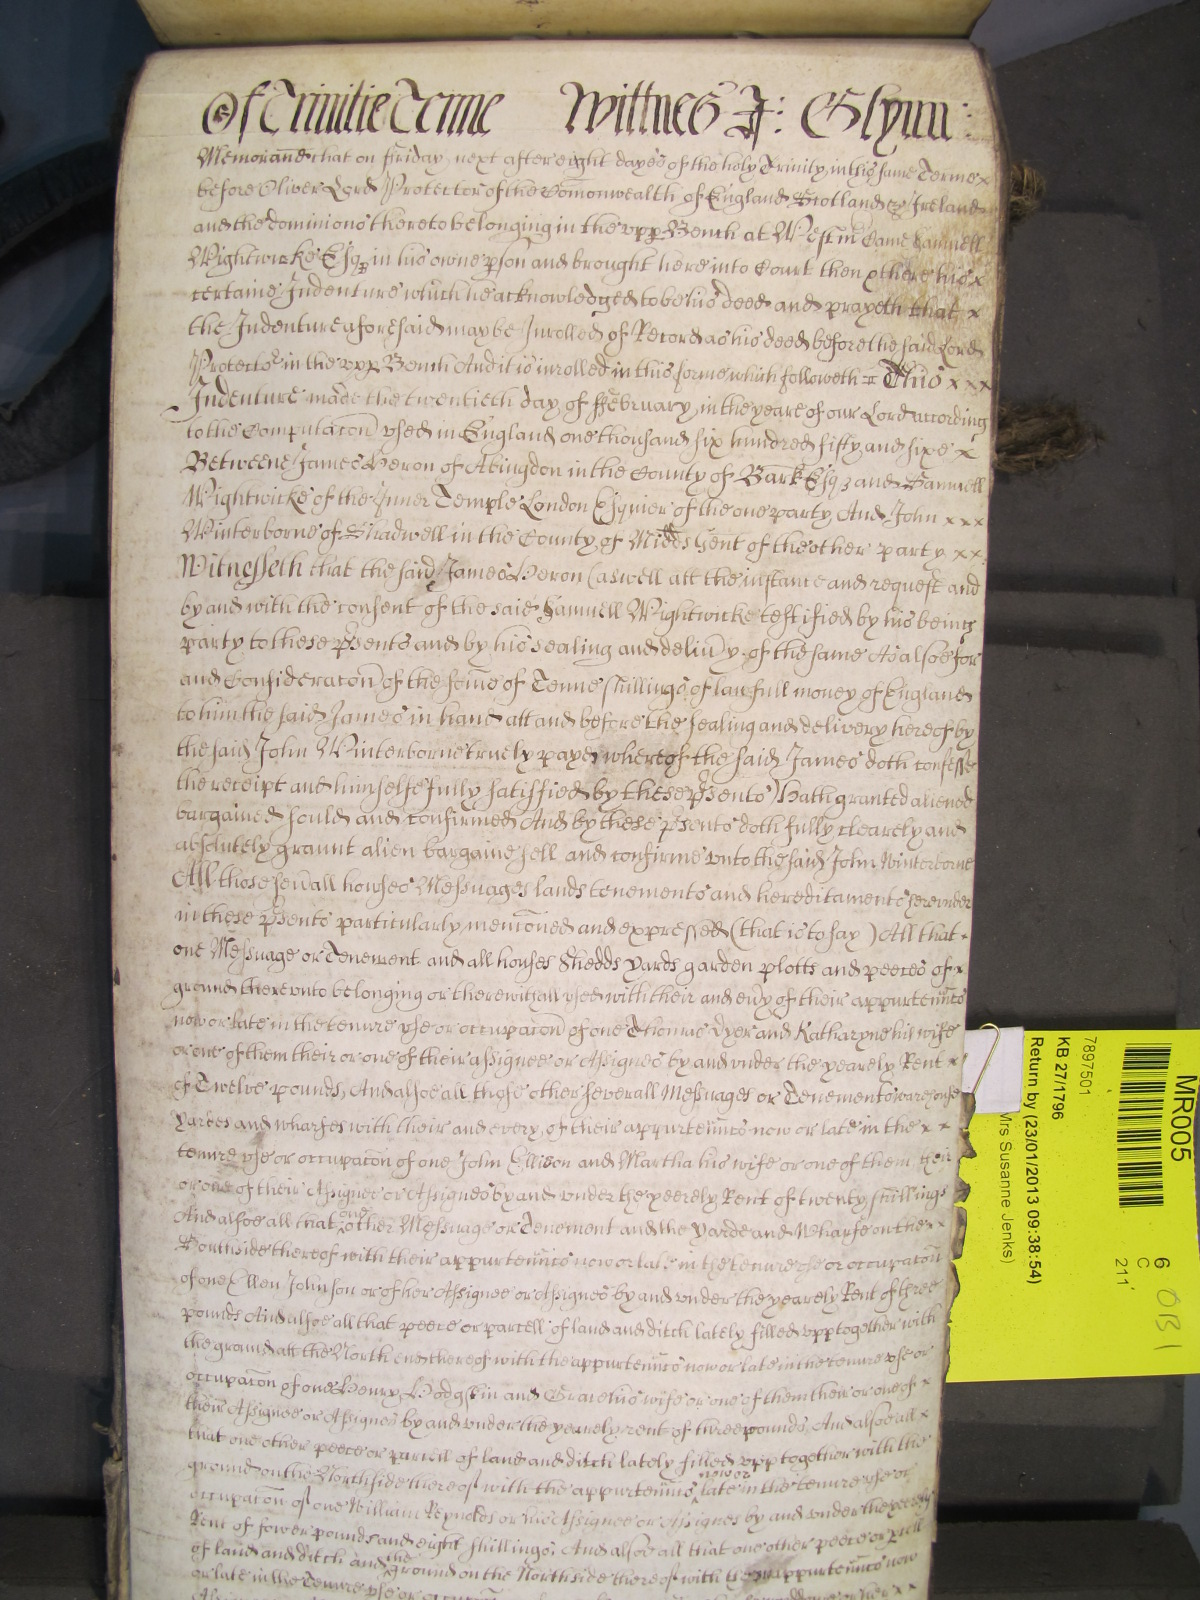 Of Trinitie Terme Wittnes J: Glynn:
Memorand that on Friday next after eight dayes of the holy Trinity in this same Terme x
before Oliver Lord Protector of the Comonwealth of England Scotland & Ireland
and the dominions thereto belonging in the vpp Bench at Westm Came Samuell
Wightwicke Esqr in his owne pson and brought here into Court then & there his x
certaine Indenture which he acknowledged to be his deed and prayeth that x
the Indenture aforesaid may be Inrolled of Record as his deed before the said Lord
Protector in the vpp Bench And it is inrolled in this forme which followeth = This x x x
Indenture made the twentieth day of ffebruary in the yeare of our Lord according
to the Computacon vsed in England one thousand six hundred fifty and sixe x
Betweene James Heron of Abingdon in the County of Bark Esqr and Samuell
Wightwicke of the Inner Temple London Esquier of the one party And John x x x
Winterborne of Shadwell in the County of Midds Gent of the other party x x
Witnesseth that the said James Heron (aswell att the instance and request and
by and with the consent of the said Samuell Wightwicke testified by his being
party to these psents and by his sealing and delivy of the same As alsoe for
and Consideracon of the some of Tenne shillings of lawfull money of England
to him the said James in hand att and before the sealing and delivery hereof by
the said John Winterborne truely payed whereof the said James doth confesse
the receipt and himselfe fully satisfied by these psents Hath granted aliened
bargained sould and confirmed And by these psents doth fully clearely and
absolutely graunt alien bargaine sell and confirme vnto the said John Winterborne
All those seuall houses Messuages lands tenements and hereditaments hereunder
in these psents particularly mencioned and expressed (that is to say) All that
one Messuage or Tenement and all houses shedds yards garden plotts and peeces of x
ground therevnto belonging or therewithall vsed with their and euy of their appurtennces
now or late in the tenure vse or occupacon of one Thomas Dyer and Katharyne his wife
or one of them their or one of their assignee or Assignes by and vnder the yearely Rent x
of Twelve pounds, And alsoe all those other severall Messuages or Tenements warehouse
yardes and wharfes with their and every of their appurtennces now or late in the x x
tenure vse or occupacon of one John Ellison and Martha his wife or one of them their
or one of their Assignee or Assignes by and vnder the yeerely Rent of twenty shillings
And alsoe all that one other Messuage or Tenement and the yarde and Wharfe on the x x
Southside thereof with their appurtennces now or late in the tenure vse or occupacon
of one Ellen Johnson or of her Assignee or Assignes by and vnder the yearely Rent of three
pounds And alsoe all that peece or parcell of land and ditch lately filled vpp together with
the ground att the North end thereof with the appurtennces now or late in the tenure vse or
occupacon of one Henry Hodgskin and Grace his wife or one of them their or one of x
their Assignee or Assignes by and vnder the yearely rent of three pounds, And alsoe all x
that one other peece or parcell of land and ditch lately filled vpp together with the
ground on the Northside thereof with the appurtennces now or late in the tenure vse or
occupacon of one William Reynolds or his Assignee or Assignes by and vnder the yeerely
Rent of fower pounds and eight shillings; And alsoe all that one other peece or pcell
of land and ditch and the ground on the Northside thereof with the appurtennces now
or late in the Tenure vse or
MR005
7897501
KB 27/1796
Return by (23/01/2013 09:38:54)
Mrs Susanne Jenks)
6
C
211
0131